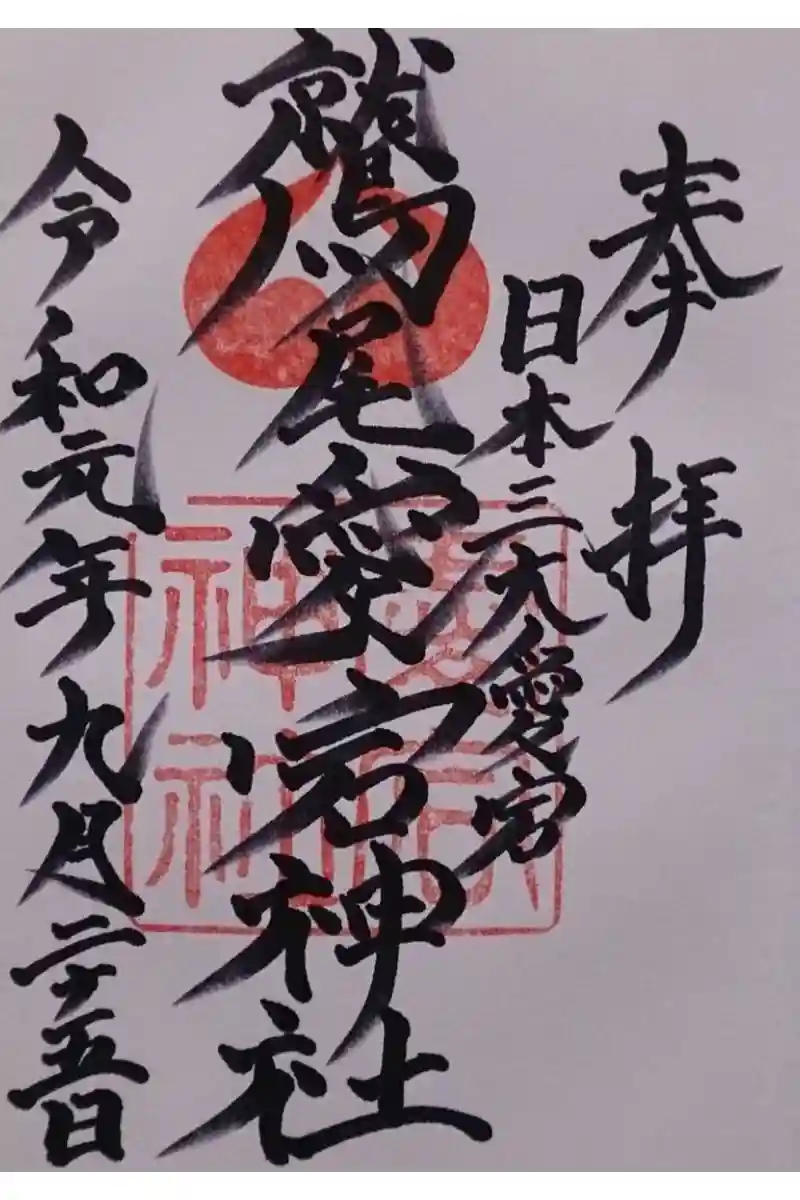 奉拝
日本三大愛宕
鷲尾愛宕神社
愛宕神社
令和元年九月二十五日